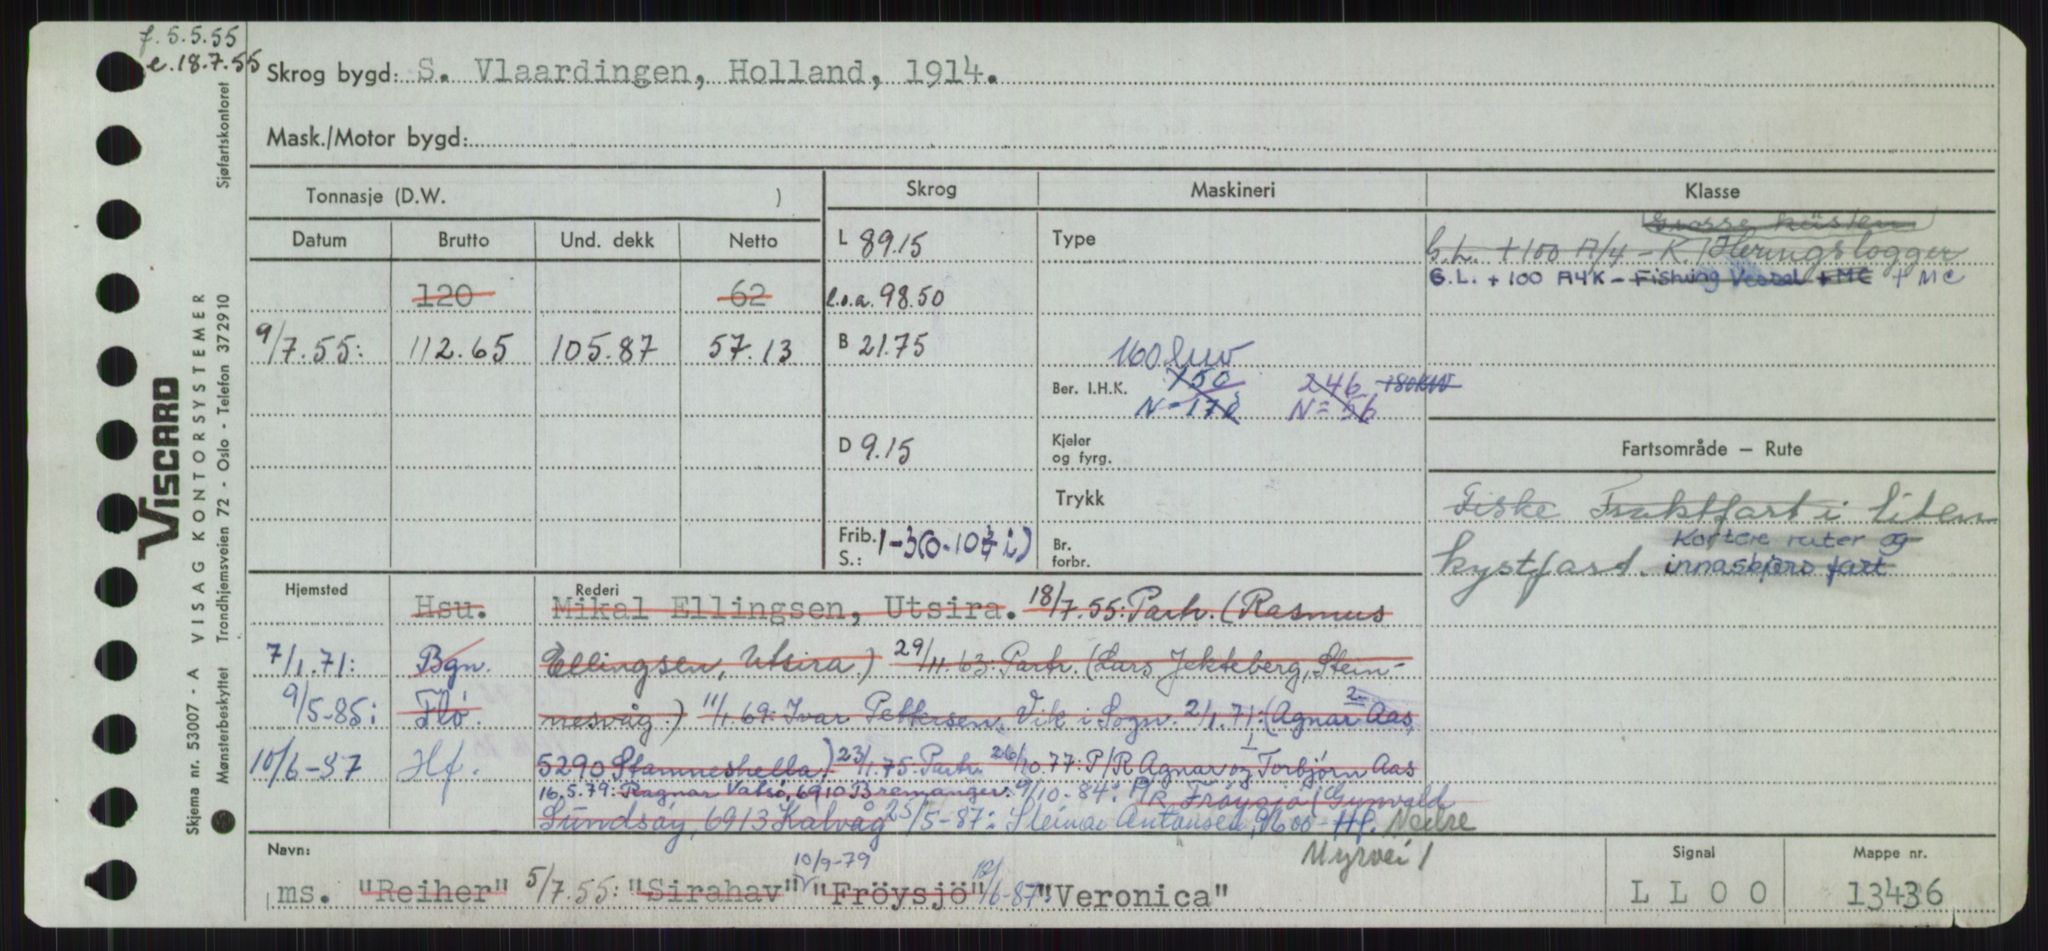 f. 5.5.55
e. 18.7.55
Skrog bygd: S. Vlaardingen, Holland, 1914.
Mask./Motor bygd:
Tonnasje (D.W. )
Skrog
Maskineri
Klasse
Datum Brutto Und. dekk Netto
L 89.15
Type
Grosse küsten
G.L. + 100 A/4 - K. Heringslogger
G.L. + 100 A4K - Fishing Vessel + MC + MC
120 62
l.o.a. 98.50
9/7.55: 112.65 105.87 57.13
B 21.75
160
Ber. I.H.K. 150 246 180KW
N = 56
D 9.15
Kjeler
og fyrg.
Fartsområde — Rute
Trykk
Fiske Fraktfart i liten
Kortere ruter og
kystfart. innaskjærs fart
Frib.
S.: 1-3(0-10¾ i)
Br.
forbr.
Hjemsted
Rederi
Hsu. Mikal Ellingsen, Utsira. 18/7.55: Partr. (Rasmus
7/1.71: Bgn. Ellingsen, Utsira.) 29/11.63: Partr. (Lars Jekteberg, Stein-
9/5-85: Flo. nesvåg.) 11/1.69: Ivar Pettersen, Vik i Sogn. 2/1.71: (Agnar Aas,
10/6-87 Hf. 5290 Stamneshella) 23/1.75: Partr. 26/10.77: P/R Agnar og Torbjørn Aas
16.5.79: Ragnar Valsø, 6910 Bremanger. 9/10-84: P/R Fröysjø (Gunvald
Sundsøy, 6913 Kalvåg 25/5-87: Steinar Antonsen, 9600 - Hf. Nedre
Myrvei 1
Navn:
ms. "Reiher" 5/7.55: "Sirahav" 10/9-79 "Fröysjö" 10/6-87 "Veronica"
Signal
LLOO
Mappe nr.
13436
VISCARD
Skjema nr. 53007 - A VISAG KONTORSYSTEMER
Mønsterbeskyttet Trondhjemsveien 72 - Oslo - Telefon 372910
Sjøfartskontoret